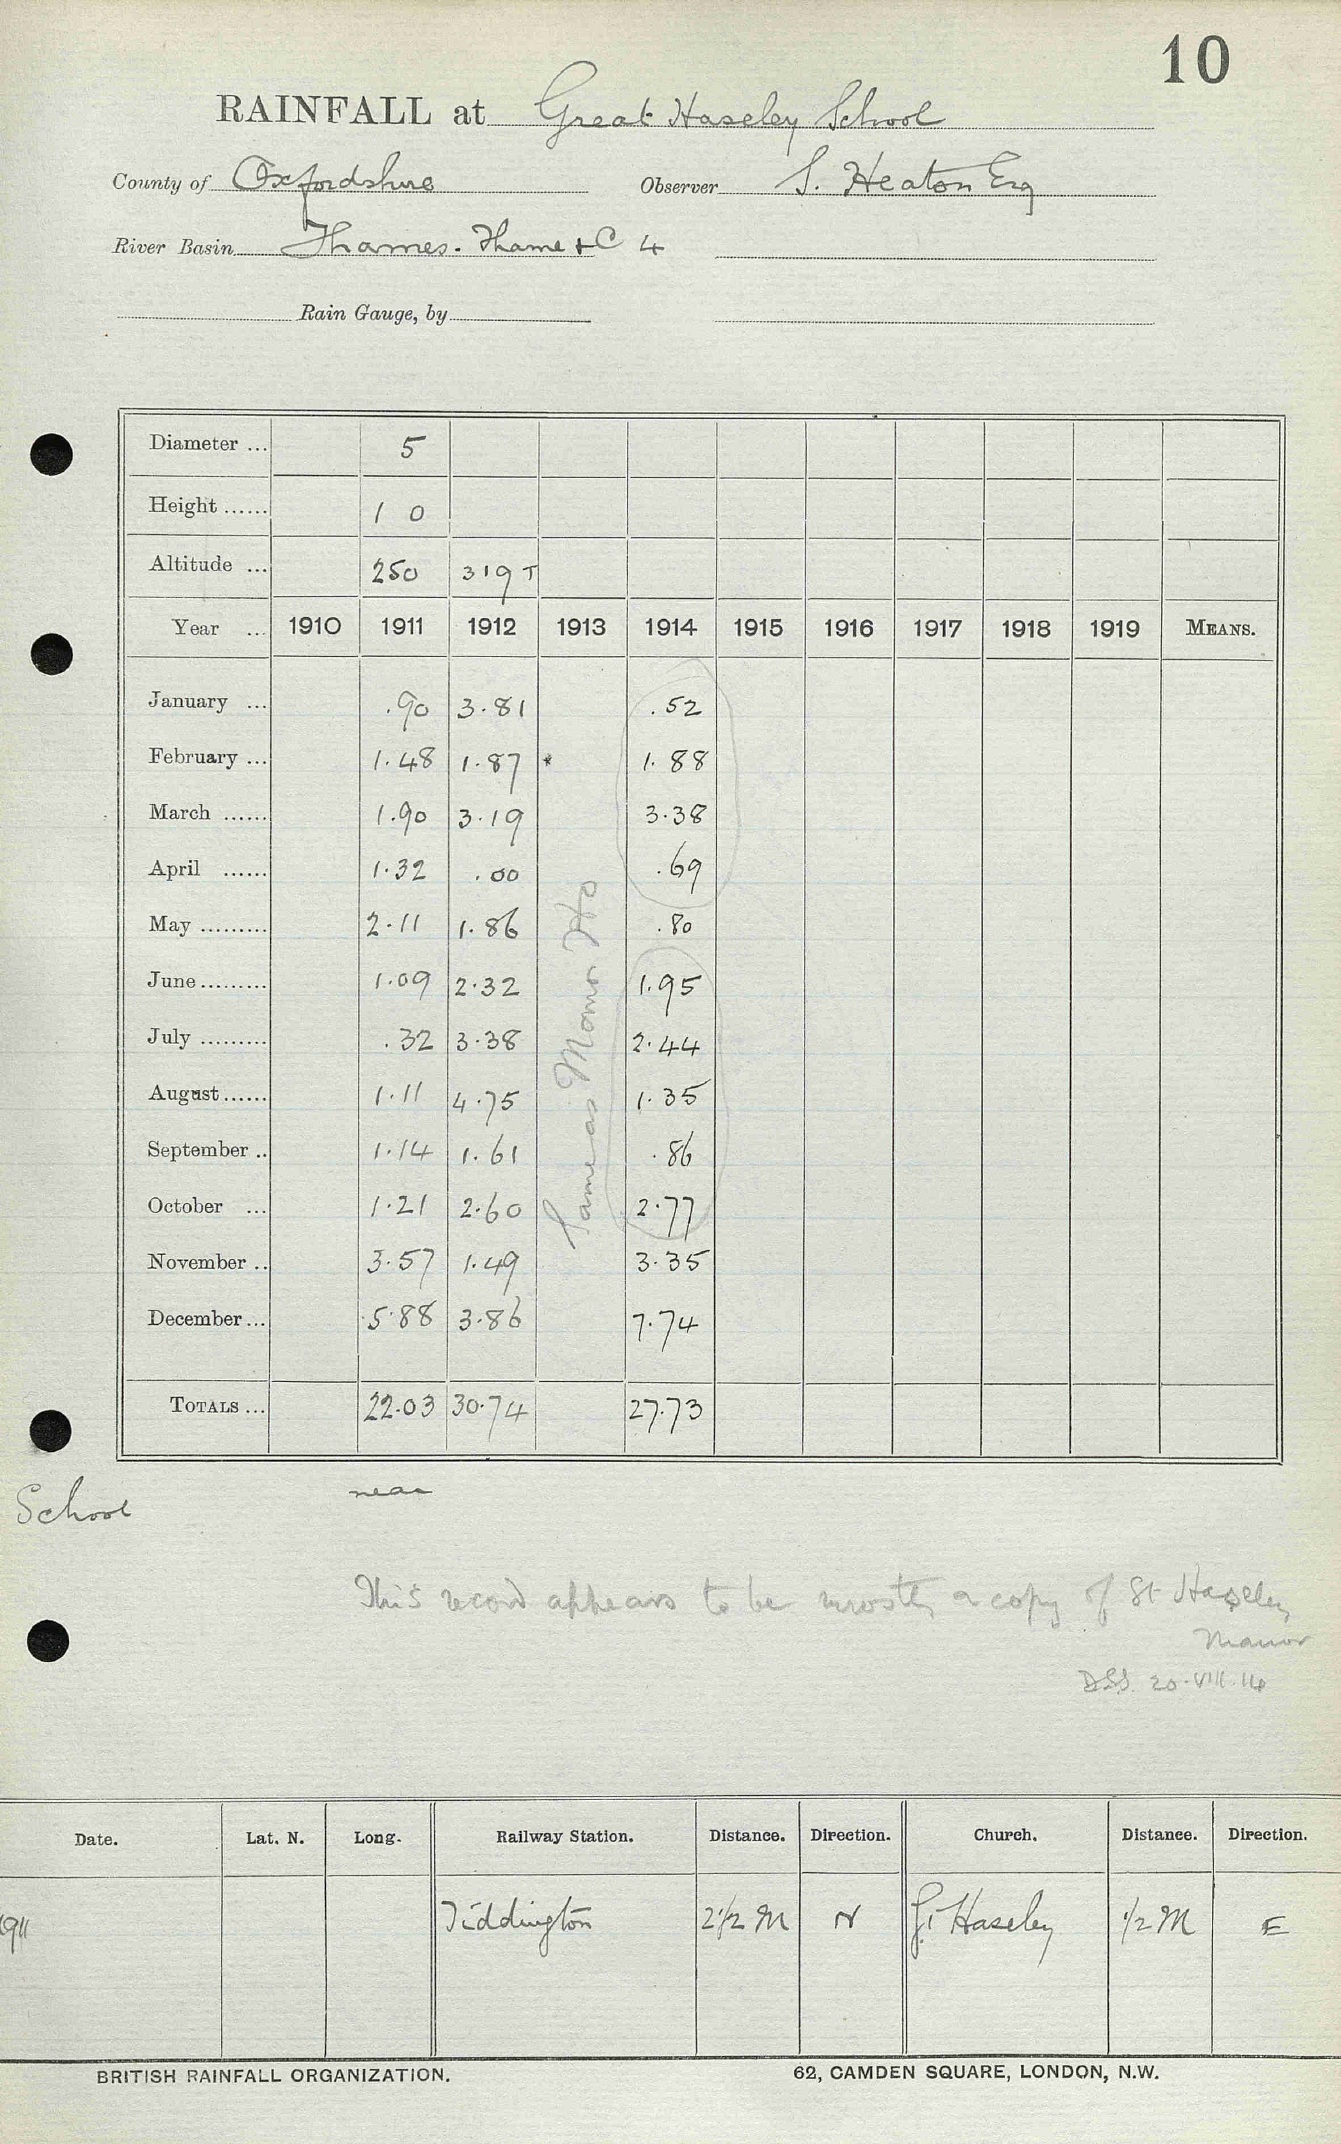 10
RAINFALL at Great Haseley School
County of Oxfordshire Observer S. Heaton Esq
River Basin Thames. Thame + C 4
Rain Gauge, by
Diameter ... 5
Height ...... 1 0
Altitude ... 250 319 T
Year ... 1910 1911 1912 1913 1914 1915 1916 1917 1918 1919 MEANS.
January ... .90 3.81 .52
February ... 1.48 1.87 * 1.88
March ...... 1.90 3.19 3.38
April ...... 1.32 .00 .69
May ......... 2.11 1.86 .80
June ......... 1.09 2.32 1.95
July ......... .32 3.38 2.44
August ...... 1.11 4.75 1.35
September .. 1.14 1.61 .86
October ... 1.21 2.60 2.77
November .. 3.57 1.49 3.35
December ... 5.88 3.86 7.74
Same as Manor Ho
TOTALS ... 22.03 30.74 27.73
School near
This record appears to be mostly a copy of Gt Haseley
Manor
20.VIII.14
Date. Lat. N. Long. Railway Station. Distance. Direction. Church. Distance. Direction.
1911 Tiddington 2 1/2 M N Gt Haseley 1/2 M E
BRITISH RAINFALL ORGANIZATION. 62, CAMDEN SQUARE, LONDON, N.W.